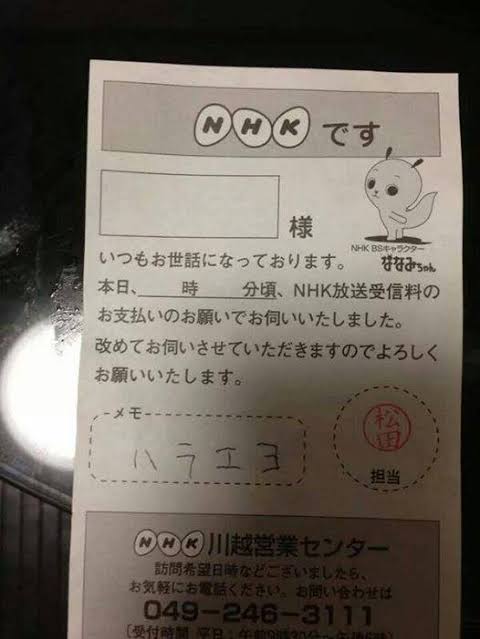 NHKです
様
NHK BSキャラクター
ななみちゃん
いつもお世話になっております。
本日、　　時　　分頃、NHK放送受信料の
お支払いのお願いでお伺いいたしました。
改めてお伺いさせていただきますのでよろしく
お願いいたします。
メモ
ハラエヨ
松田
担当
NHK川越営業センター
訪問希望日時などございましたら、
お気軽にお電話ください。お問い合わせは
049-246-3111
[受付時間 平日:午前9時30分〜